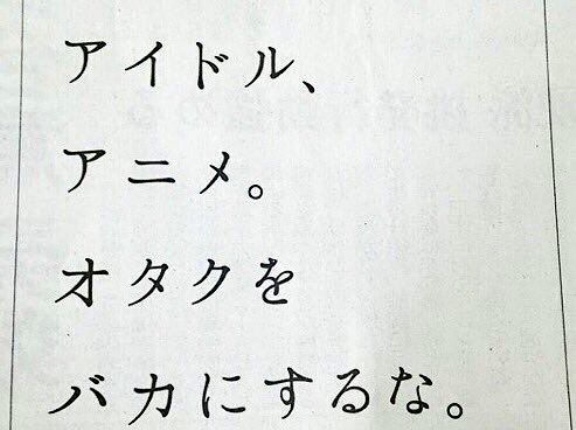 アイドル、
アニメ。
オタクを
バカにするな。